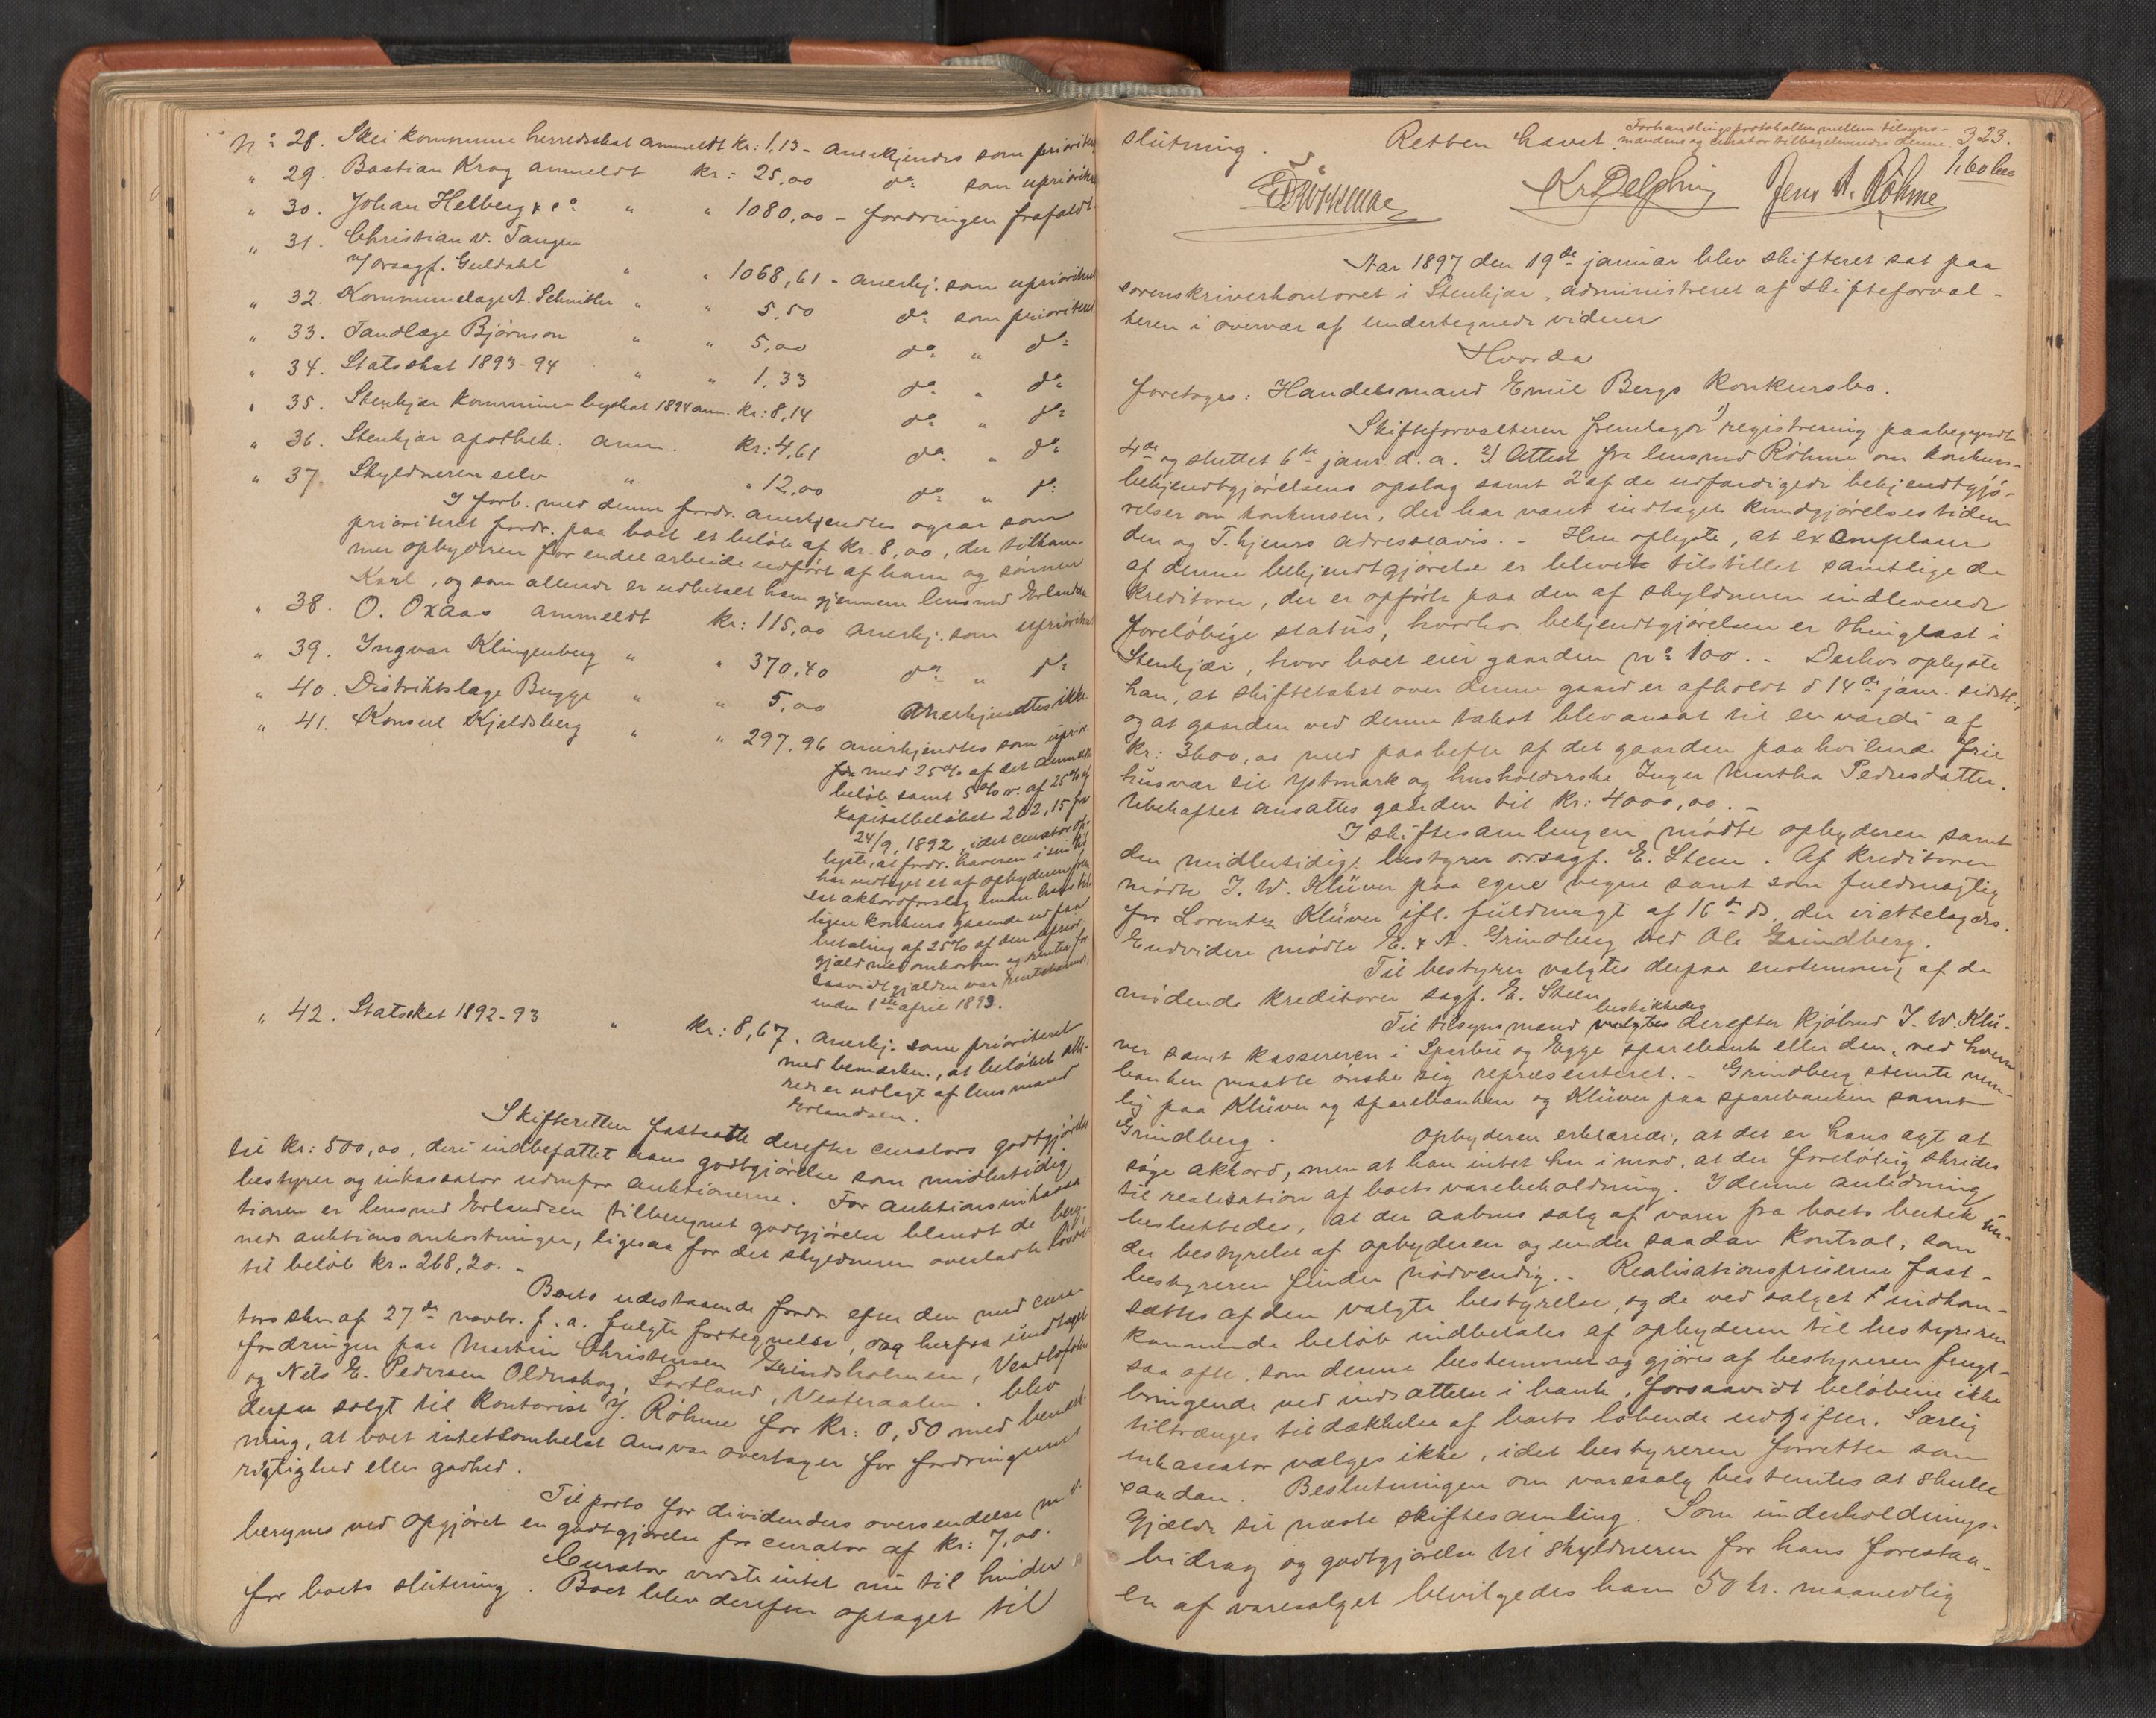 No 28. Skei kommune herredsskat anmeldt kr: 1,13 - anerkjendes som prioriteret
" 29. Bastian Krog anmeldt kr: 25,00 do som uprioriteret
" 30. Johan Helberg & Co " " 1080,00 - fordringen frafaldt
" 31. Christian v. Tangen
v/ orsagf. Guldahl " " 1068,61 - anerkj. som uprioriteret
" 32. Kommunelæge A. Schnitler " " 5,50 do som prioriteret
" 33. Tandlæge Bjørnson " " 5,00 do " do
" 34. Statsskat 1893-94 " " 1,33 do " do
" 35. Stenkjær kommune byskat 1894 anm. kr: 8,14 do " do
" 36. Stenkjær apothek. anm. kr: 4,61 do " do
" 37. Skyldneren selv " " 12,00 do " do
I forb. med denne fordr. anerkjendtes ogsaa som
prioriteret fordr. paa boet et beløb af kr. 8,00, der tilkom-
mer opbyderen for endel arbeide udført af ham og sønnen
Karl, og som allerede er udbetalt ham gjennem lensmd Erlandsen
" 38. O. Oxaas anmeldt kr: 115,00 anerkj. som uprioriteret
" 39. Ingvar Klingenberg " " 370,40 do " do
" 40. Distriktslæge Bugge " " 5,00 Anerkjendtes ikke
" 41. Konsul Kjeldsberg " " 297,96 anerkjendtes som uprior.
med 25% af det anmeldte
beløb samt 5% r. af 25% af
kapitalbeløbet 202,15 fra
24/9 1892, idet curator op-
lyste, at fordr. haveren i sin tid
har vedtaget et af opbyderen frem-
sat akkordforslag under hans tid-
ligere konkurs gaaende ud paa
betaling af 25% af den uprior.
gjæld med omkostn. og renter for
saavidt gjælden var rentebærende,
inden 1ste april 1893.
" 42. Statsskat 1892-93 " kr: 8,67. anerkj. som prioriteret
med bemærkn., at beløbet alle-
rede er udlagt af lensmand
Erlandsen.
Skifteretten fastsatte derefter curators godtgjørelse
til kr: 500,00, deri indbefattet hans godtgjørelse som midlertidig
bestyrer og inkassator udenfor auktionerne. For auktionsinkassa
tionen er lensmd Erlandsen tilberegnet godtgjørelse blandt de bereg-
nede auktionsomkostninger, ligesaa for det skyldneren overladte løsøre
til beløb kr.. 268,20. -
Boets udestaaende fordr. efter den med cura-
tors skr. af 27de novbr. f. a. fulgte fortegnelse, dog herfra undtaget
fordringen paa Martin Christensen Grindsholmen, Vestlofoten
og Nils E. Pedersen Oldnshog, Sortland, Vesteraalen, blev
derpaa solgt til kontorist J. Røhme for kr: 0,50 med bemærk-
ning, at boet intetsomhelst ansvar overtager for fordringernes
rigtighed eller godhed.
Til porto for dividenders oversendelse m.v.
beregnes ved opgjøret en godtgjørelse for curator af kr: 7,00.
Curator vidste intet nu til hinder
for boets slutning. Boet blev derefter optaget til
323.
slutning. Retten hævet. Forhandlingsprotokollen mellem tilsyns-
mændene og curator tilbageleveredes denne.
1,60 
Kr Delphin Jens A. Røhme
Aar 1897 den 19de januar blev skifteret sat paa
sorenskriverkontoret i Stenkjær, administreret af skifteforval-
teren i overvær af undertegnede vidner
Hvorda
foretoges: Handelsmand Emil Bergs konkursbo.
Skifteforvalteren fremlagde 1) registrering paabegyndt
4de og sluttet 6te janr. d. a. 2) Attest fra lensmd Røhme om konkurs-
bekjendtgjørelsens opslag samt 2 af de udfærdigede bekjendtgjø-
relser om konkursen, der har været indtaget kundgjørelsestiden
den og T.hjems adresseavis. - Han oplyste, at exemplarer
af denne bekjendtgjørelse er blevet tilstillet samtlige de
kreditorer, der er opførte paa den af skyldneren indleverede
foreløbige status, hvorhos bekjendtgjørelsen er thinglæst i
Stenkjær, hvor boet eier gaarden No 100. - Derhos oplyste
han, at skiftetakst over denne gaard er afholdt d 14de janr. sidstl.,
og at gaarden ved denne takst blev ansat til en værdi af
kr: 3600,00 med paahefte af det gaarden paahvilende frie
husvær til Ystmark og husholderske Inger Martha Pedersdatter.
Ubeheftet ansattes gaarden til kr: 4000,00. -
I skiftesamlingen mødte opbyderen samt
den midlertidige bestyrer orsagf. E. Steen. Af kreditorer
mødte J. W. Klüver paa egne vegne samt som fuldmægtig
for Lorentz Klüver ifl. fuldmagt af 16de ds, der vistedelagdes.
Endvidere mødte E. & A. Grindberg ved Ole Grindberg.
Til bestyrer valgtes derpaa enstemmig af de
mødende kreditorer sagf. E. Steen
beskikkedes
Til tilsynsmænd valgtes derefter kjøbmd J. W. Klü-
ver samt kassereren i Sparbu og Egge sparebank eller den, ved hvem
banken maatte ønske sig repræsenteret. - Grindberg stemte nem-
lig paa Klüver og sparebanken og Klüver paa sparebanken samt
Grindberg. Opbyderen erklærede, at det er hans agt at
søge akkord, men at han intet har imod, at der foreløbig skrides
til realisation af boets varebeholdning. I denne anledning
besluttedes, at der aabnes salg af varer fra boets butik un-
der bestyrelse af opbyderen og under saadan kontrol, som
bestyreren finder nødvendig. - Realisationspriserne fast-
sættes af den valgte bestyrelse, og de ved salget indkom-
kommende beløb indbetales af opbyderen til bestyreren
saa ofte, som denne bestemmer og gjøres af bestyreren frugt-
bringende ved indsættelse i bank, forsaavidt beløbene ikke
tiltrænges til dækkelse af boets løbende udgifter. Særlig
inkassator vælges ikke, idet bestyreren forretter som
saadan. Beslutningen om varesalg bestemtes at skulle
gjælde til næste skiftesamling. Som underholdnings-
bidrag og godtgjørelse til skyldneren for hans forestaa-
en af varesalget bevilgedes ham 50 kr. maanedlig